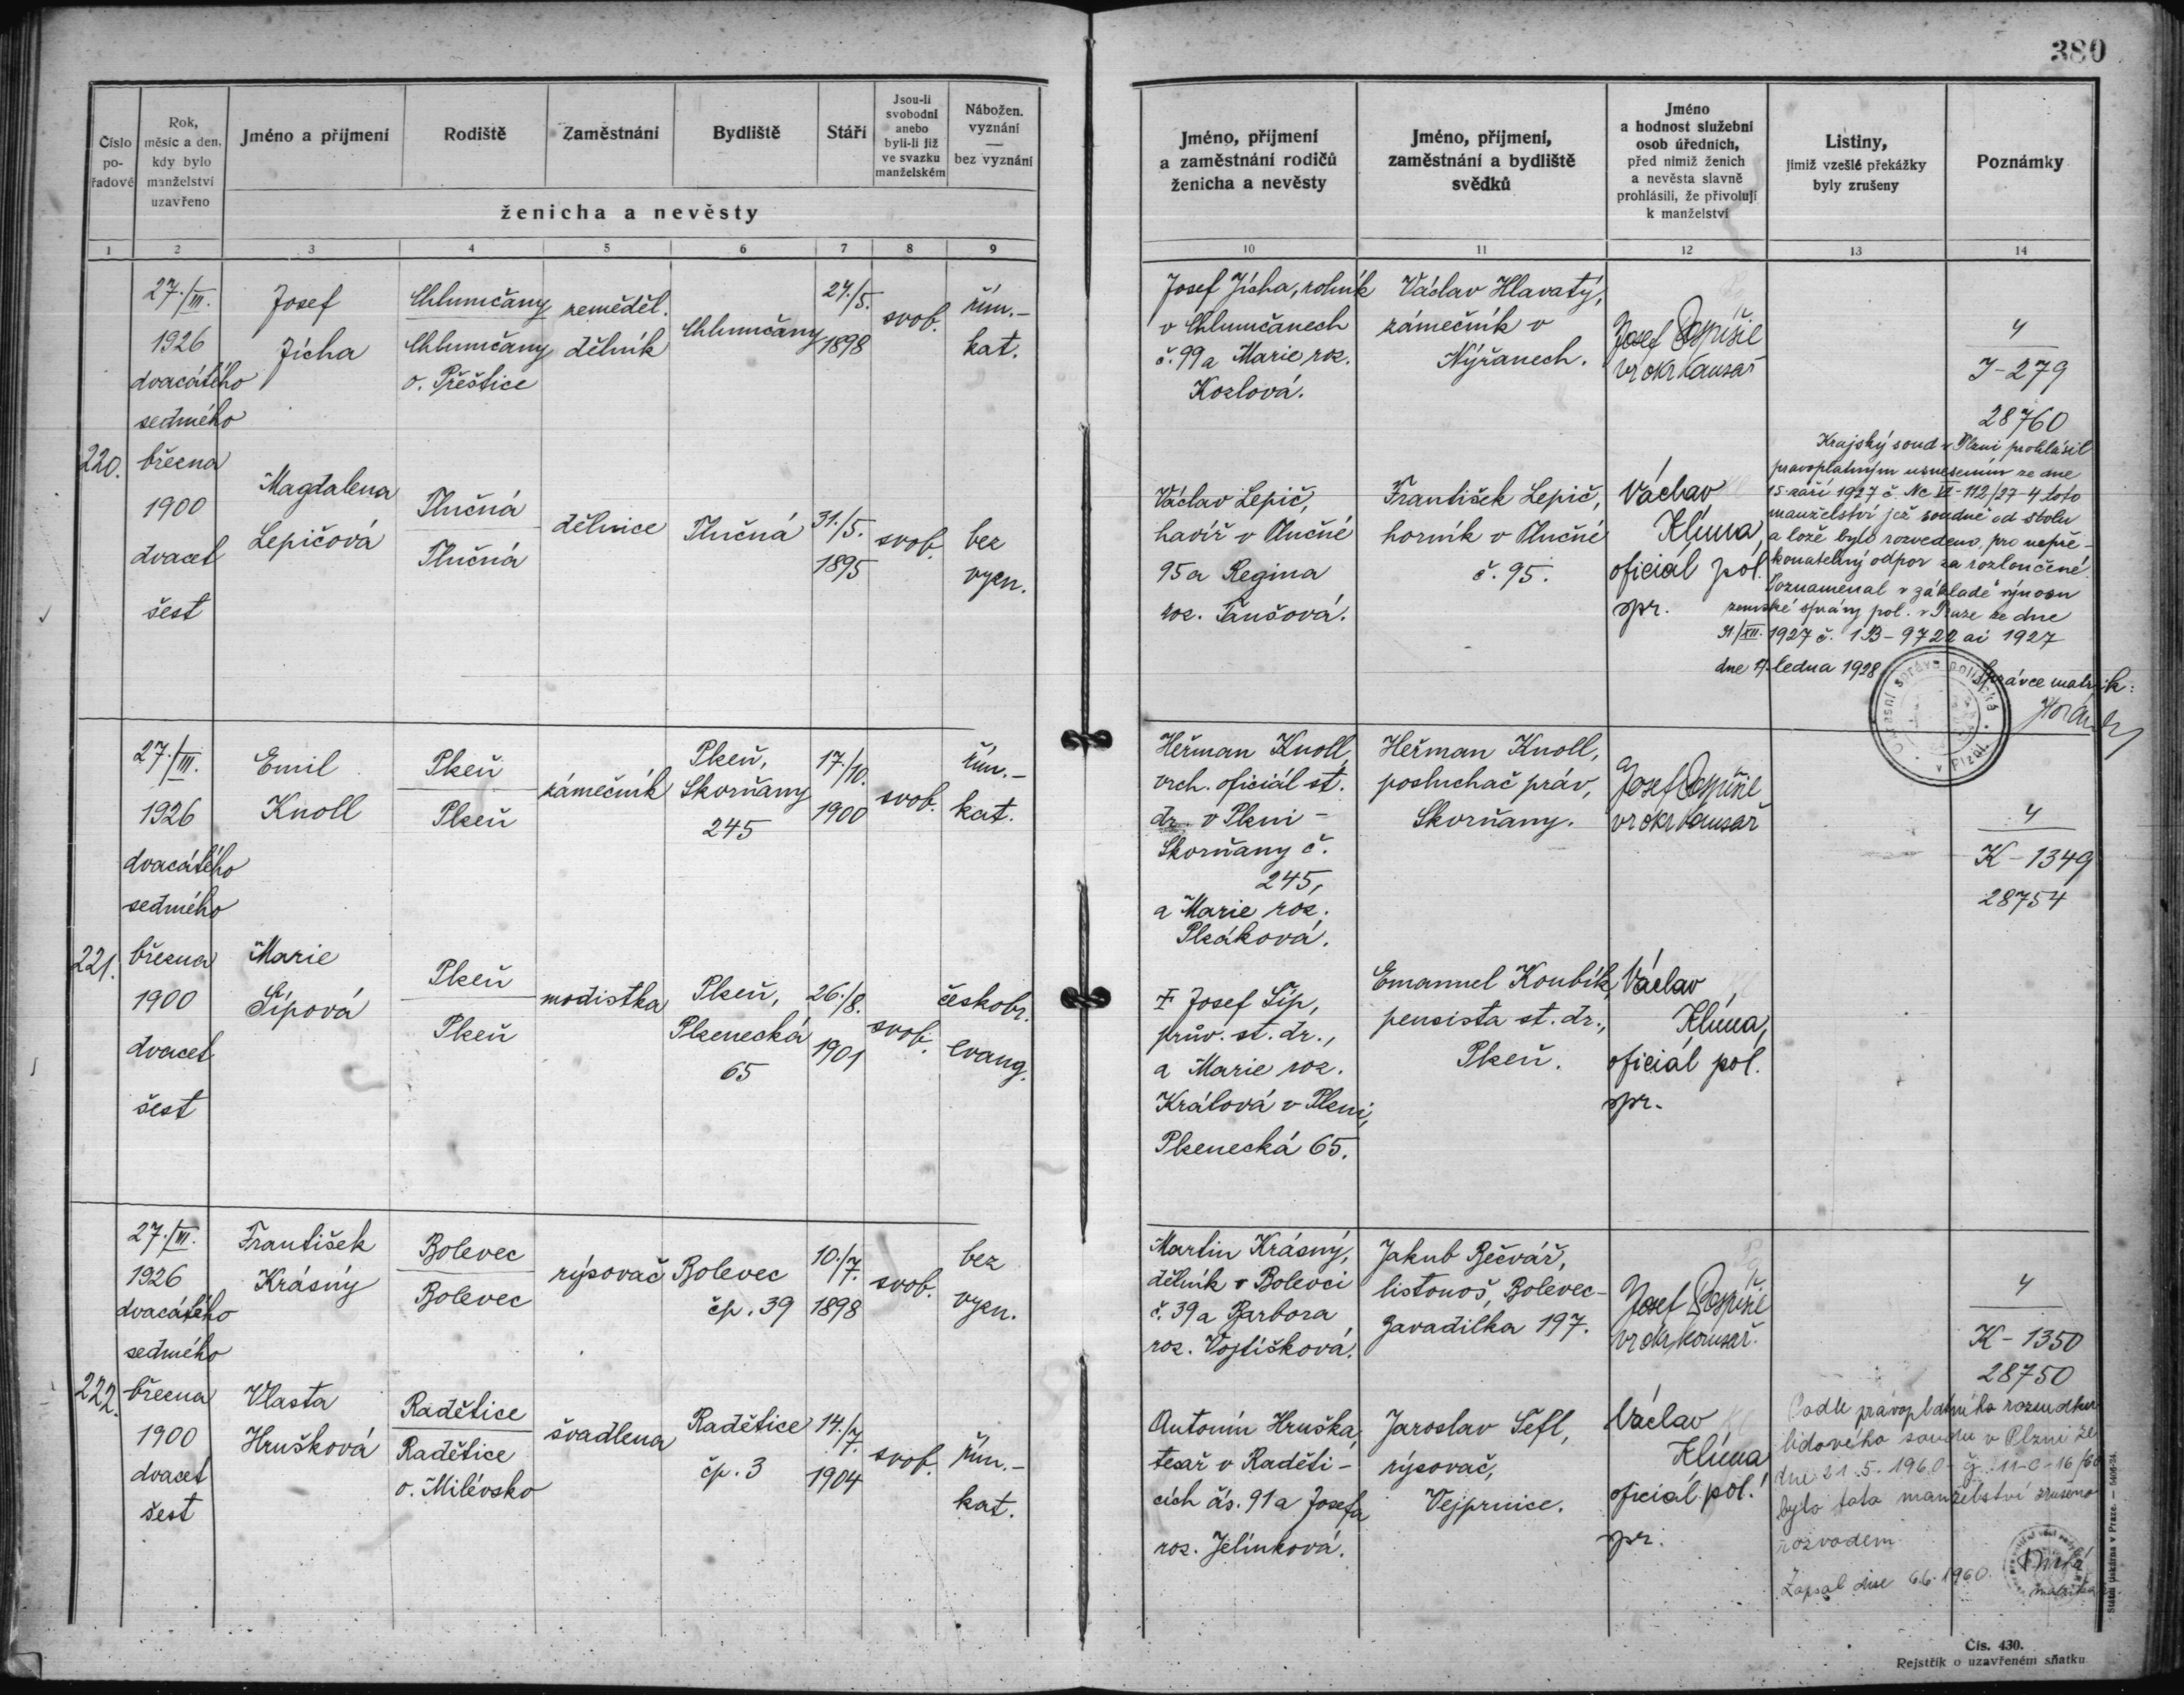 380
Číslo pořadové
Rok, měsíc a den, kdy bylo manželství uzavřeno
Jméno a příjmení
Rodiště
Zaměstnání
Bydliště
Stáří
Jsou-li svobodni anebo byli-li již ve svazku manželském
Nábožen. vyznání — bez vyznání
ženicha a nevěsty
Jméno, příjmení a zaměstnání rodičů ženicha a nevěsty
Jméno, příjmení, zaměstnání a bydliště svědků
Jméno a hodnost služební osob úředních, před nimiž ženich a nevěsta slavně prohlásili, že přivolují k manželství
Listiny, jimiž vzešlé překážky byly zrušeny
Poznámky
1 2 3 4 5 6 7 8 9 10 11 12 13 14
220.
27./III.
1926
dvacátého
sedmého
března
1900
dvacet
šest
Josef
Jícha
Chlumčany
Chlumčany
o. Přeštice
zeměděl.
dělník
Chlumčany
24./5.
1898
svob.
řím.-
kat.
Josef Jícha, rolník
v Chlumčanech
č. 99 a Marie roz.
Kozlová.
Václav Hlavatý,
zámečník v
Nýřanech.
Josef Pospíšil
vr okr komisař
4
J-279
28760
Magdalena
Lepičová
Tlučná
Tlučná
dělnice
Tlučná
31./5.
1895
svob.
bez
vyzn.
Václav Lepič,
havíř v Tlučné
95 a Regina
roz. Taušová.
František Lepič,
horník v Tlučné
č. 95.
Václav
Klíma,
oficiál pol.
spr.
Krajský soud v Plzni prohlásil
pravoplatným usnesením ze dne
15. září 1927 č. Nc VI-112/27-4 toto
manželství jež soudně od stolu
a lože bylo rozvedeno, pro nepře-
konatelný odpor za rozloučené.
Poznamenal v základě výnosu
zemské správy pol. v Praze ze dne
31/XII. 1927 č. 1B-9722 ai 1927
dne 17. ledna 1928
Správce matrik:
221.
27./III.
1926
dvacátého
sedmého
března
1900
dvacet
šest
Emil
Knoll
Plzeň
Plzeň
zámečník
Plzeň,
Skorňany
245
17./10.
1900
svob.
řím.-
kat.
Heřman Knoll,
vrch. oficiál st.
dr. v Plzni -
Skorňany č.
245,
a Marie roz.
Plzáková.
Heřman Knoll,
posluchač práv,
Skorňany.
Josef Pospíšil
vr okr komisař
4
K-1349
28754
Marie
Šípová
Plzeň
Plzeň
modistka
Plzeň,
Plzenecká
65
26./8.
1901
svob.
českobr.
evang.
† Josef Šíp,
prův. st. dr.,
a Marie roz.
Králová v Plzni,
Plzenecká 65.
Emanuel Koubík,
pensista st. dr.,
Plzeň.
Václav
Klíma,
oficiál pol.
spr.
222.
27./III.
1926
dvacátého
sedmého
března
1900
dvacet
šest
František
Krásný
Bolevec
Bolevec
rýsovač
Bolevec
čp. 39
10./7.
1898
svob.
bez
vyzn.
Martin Krásný,
dělník v Bolevci
č. 39 a Barbora
roz. Vojtíšková.
Jakub Bečvář,
listonoš, Bolevec-
Zavadilka 197.
Josef Pospíšil
vr okr komisař.
4
K-1350
28750
Vlasta
Hrušková
Radětice
Radětice
o. Milévsko
švadlena
Radětice
čp. 3
14./7.
1904
svob.
řím.-
kat.
Antonín Hruška,
tesař v Raděti-
cích čís. 91 a Josefa
roz. Jelínková.
Jaroslav Šefl,
rýsovač,
Vejprnice.
Václav
Klíma
oficiál pol.
spr.
Podle právoplatného rozsudku
lidového soudu v Plzni ze
dne 21.5.1960 č. 11-C-16/60
bylo toto manželství zrušeno
rozvodem.
Zapsal dne 6.6.1960.
matrikář
Státní tiskárna v Praze. — 5406-24
Čís. 430.
Rejstřík o uzavřeném sňatku